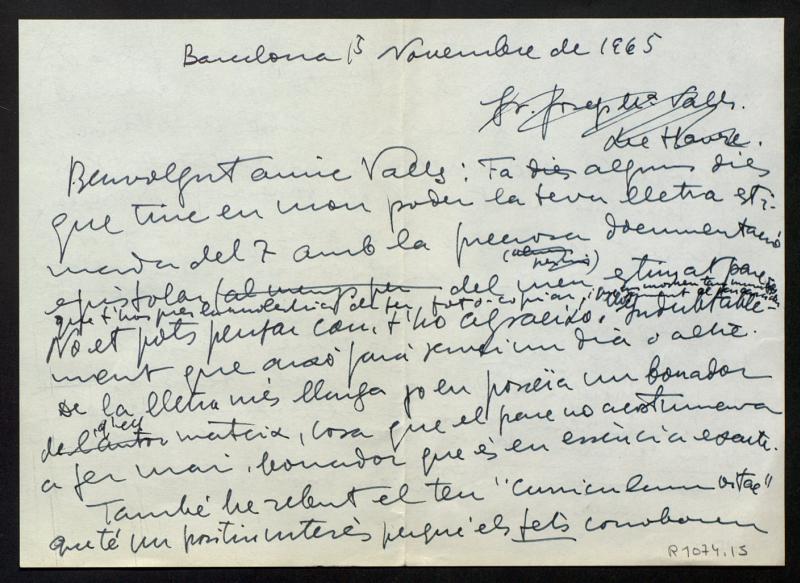 Barcelona 13 Novembre de 1965
Sr. Josep Mª Valls.
Le Havre.
Benvolgut amic Valls: Fa dies alguns dies
que tinc en mon poder la teva lletra esti-
mada del 7 amb la preciosa documentació
epistolar (al menys per del meu estimat pare
que t'has pres la molèstia de fer fotocopiar,
No et pots pensar com t'ho agraeixo. Indubtable-
ment que això farà servei un dia o altre.
De la lletra més llarga jo en posseïa un borrador
de l'autor mateix, cosa que el pare no acostumava
a fer mai, borrador que és en essència exacte.
També he rebut el teu "curriculum vitae"
que té un positiu interès perquè els fets corroboren
R 1074.15